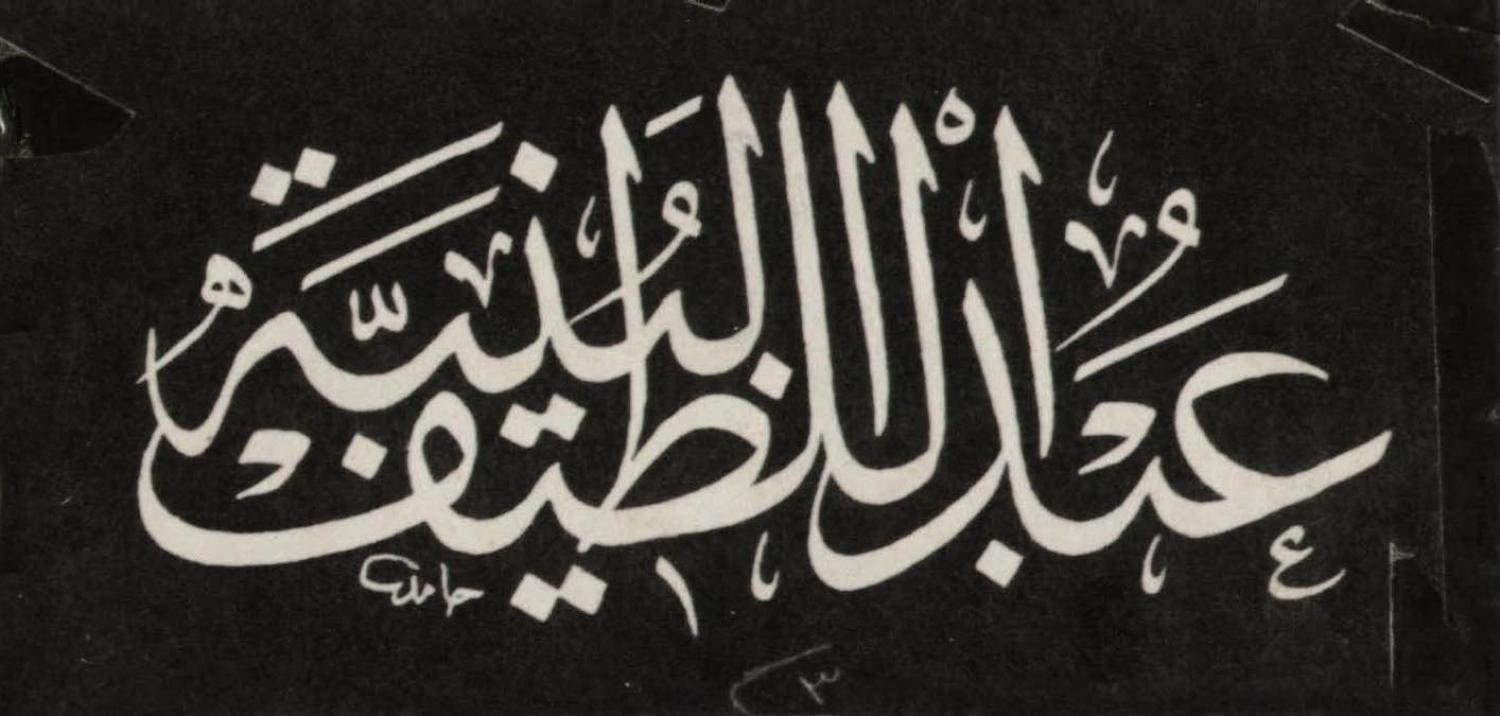 عبد اللطيف البُنيَّة
حامد